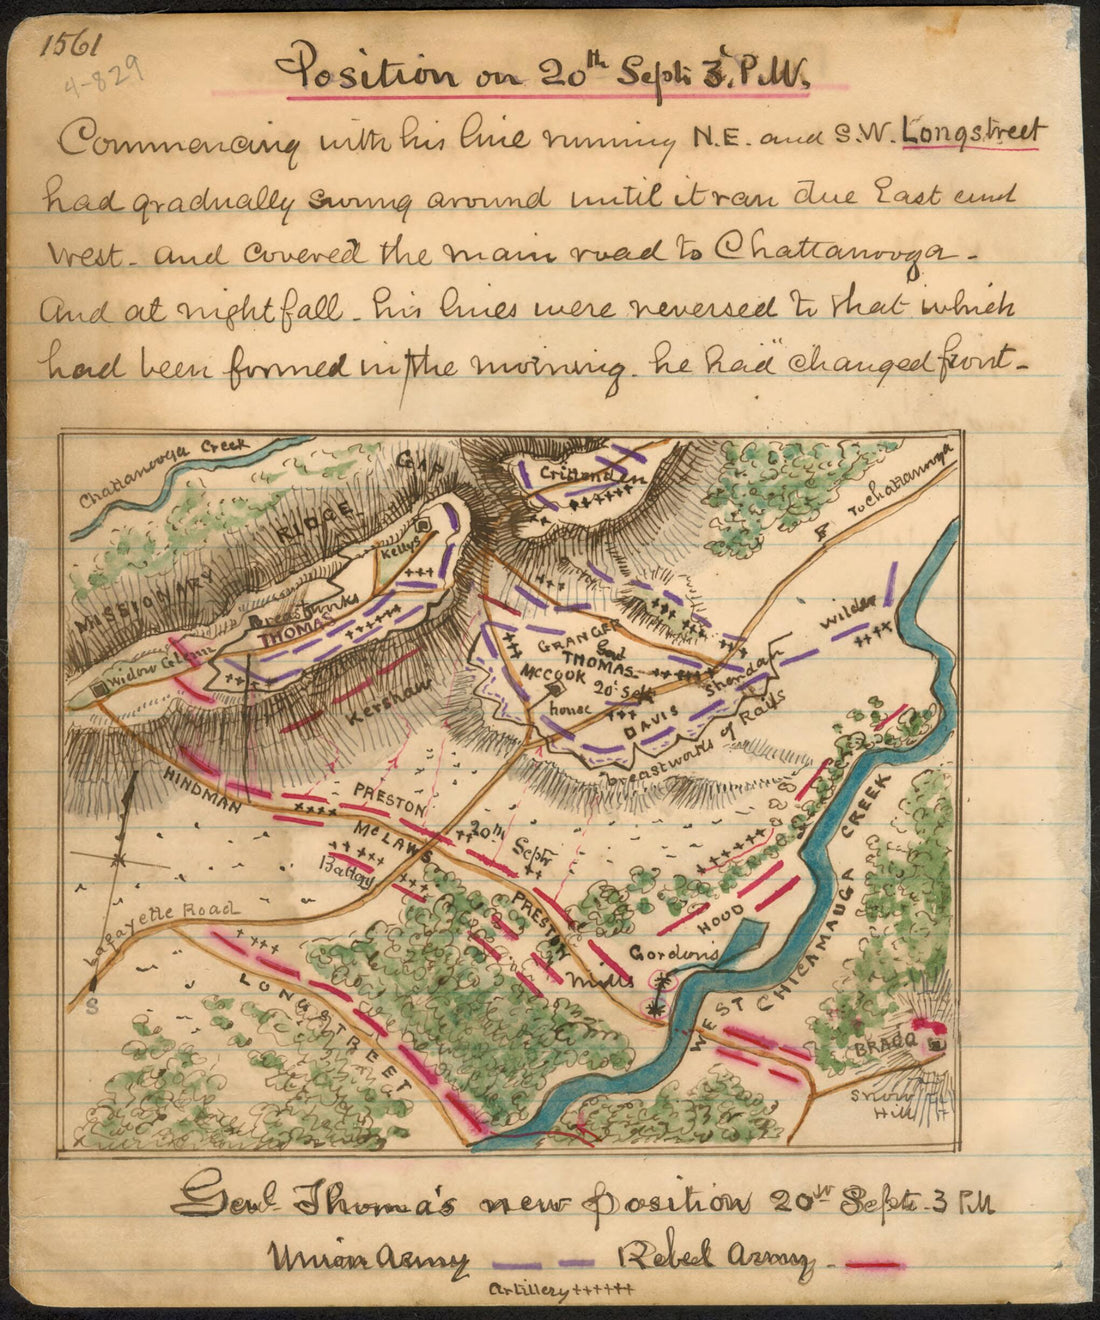 1561
4-829
Position on 20th Sept: 3. P.M.
Commencing with his line running N.E. and S.W. Longstreet
had gradually swung around until it ran due East and
West - and covered the main road to Chattanooga -
And at nightfall - his lines were reversed to that which
had been formed in the morning. he had "changed front -
Chattanooga Creek
GAP
Crittenden
To Chattanooga
RIDGE
Kellys
MISSIONARY
Breastworks
THOMAS
Wilder
Widow Glenn
GRANGER
Genl
THOMAS
Sheridan
McCOOK 20' Sept
Kershaw
house
DAVIS
breastworks of Rails
HINDMAN
PRESTON
McLAWS
20th Sept
Battery
CREEK
Lafayette Road
PRESTON
HOOD
Gordon's
Mills
WEST CHICAMAUGA
LONGSTREET
S
BRAGG
Snow
Hill
Genl Thomas's new position 20th Sept. 3 PM
Union Army Rebel Army -
Artillery ++++++